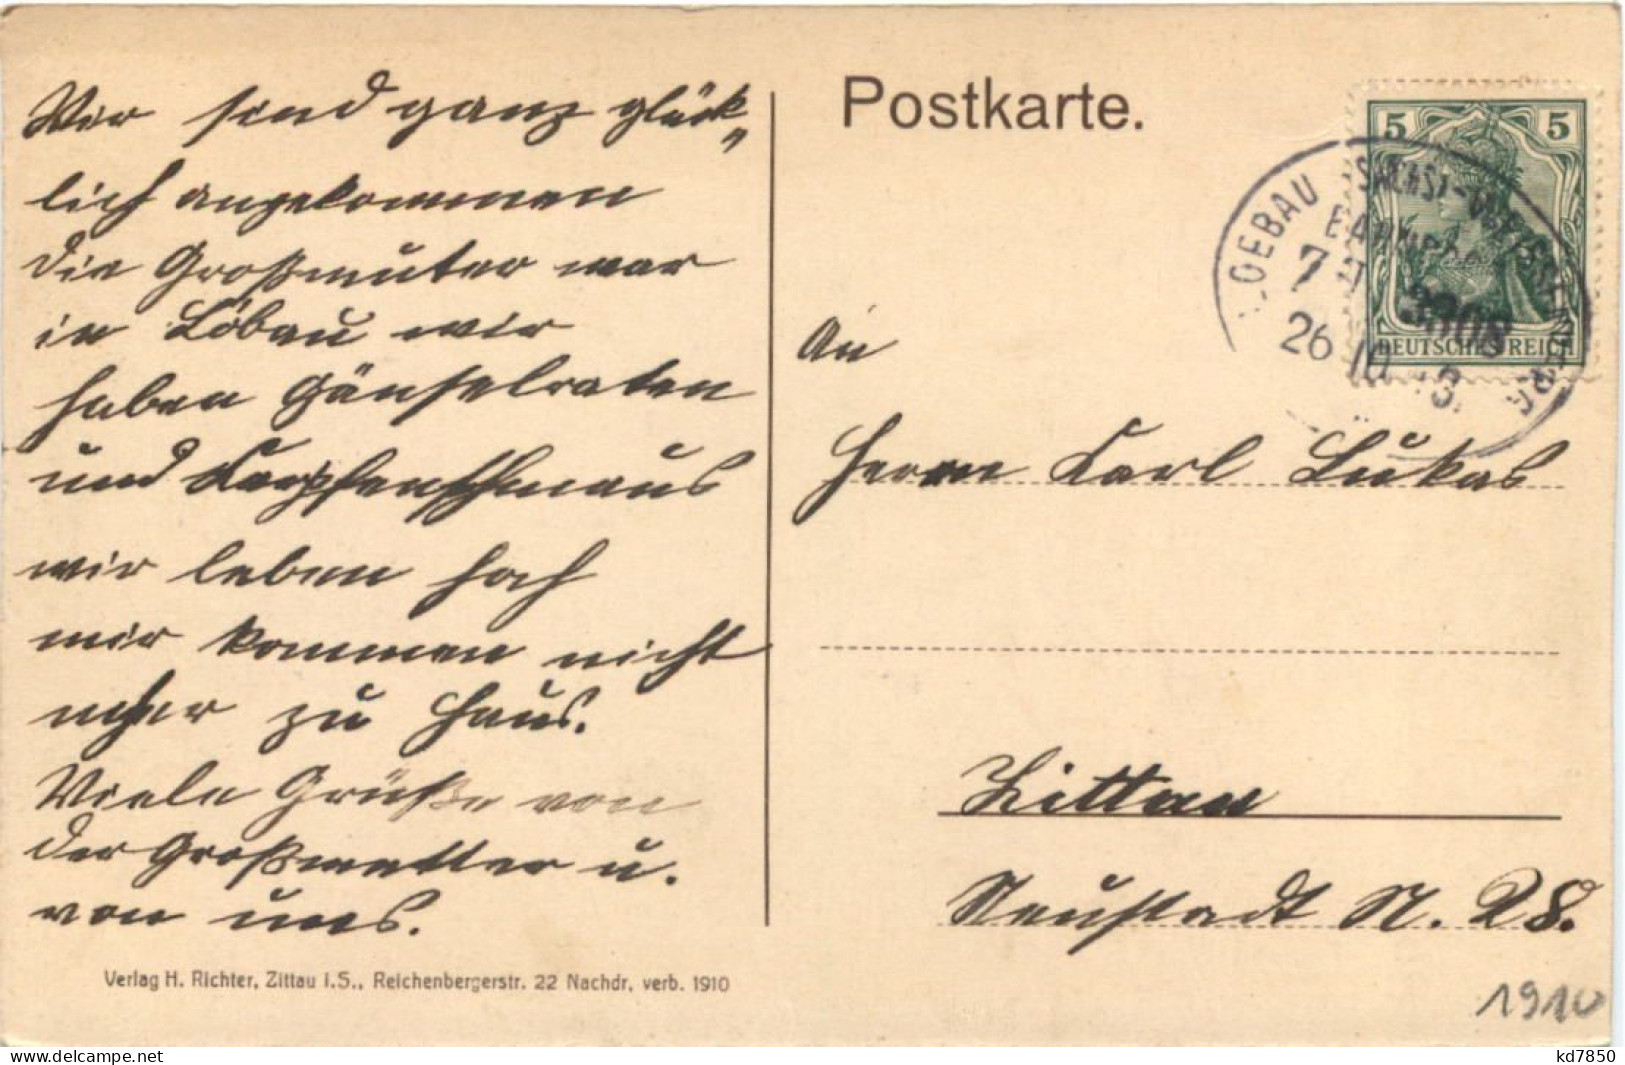 Wir sind ganz glück„
lich angekommen
die Großmuter war
in Löbau wir
haben Gänselraten
und Karpfenschmaus
wir leben hoch
wir kommen nicht
meher zu Haus.
Viele Grüße von
der Großmutter u.
von uns.
Verlag H. Richter, Zittau i.S., Reichenbergerstr. 22 Nachdr. verb. 1910
Postkarte.
5 5
DEUTSCHES REICH
LOEBAU (SACHS)-
BAHNPOST
7
26 10
An
Herrn Karl Lukas
Zittau
Neustadt N. 28.
1910
kd7850
delcampe.net